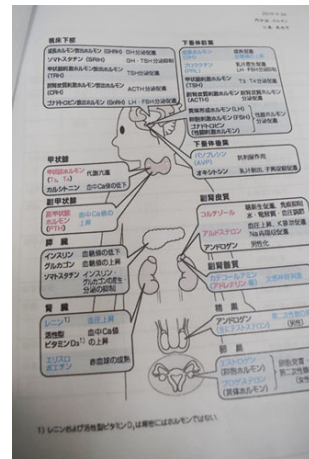 視床下部
成長ホルモン放出ホルモン(GHRH) GH分泌促進
ソマトスタチン(SRIH) GH・TSH分泌抑制
甲状腺刺激ホルモン放出ホルモン
(TRH) TSH分泌促進
副腎皮質刺激ホルモン放出ホルモン
(CRH) ACTH分泌促進
ゴナドトロピン放出ホルモン(GnRH) LH・FSH分泌促進
下垂体前葉
成長ホルモン 成長促進
(GH) 血糖値の上昇
プロラクチン 乳汁産生
(PRL) LH・FSH分泌抑制
甲状腺刺激ホルモン
(TSH) T3・T4分泌促進
副腎皮質刺激ホルモン
(ACTH)
黄体形成ホルモン(LH)
卵胞刺激ホルモン(FSH)
ゴナドトロピン
(性腺刺激ホルモン)
性腺ホルモン
分泌促進
下垂体後葉
バソプレシン
(AVP) 抗利尿作用
オキシトシン 乳汁射出、子宮収縮促進
甲状腺
甲状腺ホルモン 代謝亢進
(T3, T4)
カルシトニン 血中Ca値の低下
副甲状腺
副甲状腺 血中Ca値の
ホルモン 上昇
(PTH)
膵臓
インスリン 血糖値の低下
グルカゴン 血糖値の上昇
ソマトスタチン インスリン・
グルカゴンの産生
分泌の抑制
腎臓
レニン1) 血圧上昇
活性型 血中Ca値
ビタミンD3 1) の上昇
エリスロ
ポエチン 赤血球の成熟
副腎皮質
コルチゾール 糖新生促進、免疫抑制
水・電解質・血圧調節
アルドステロン 血圧上昇、K排泄促進
Na再吸収促進
アンドロゲン 男性化
副腎髄質
カテコールアミン
(アドレナリン
精巣
アンドロゲン
(テストステロン) (男性)
卵巣
エストロゲン
(卵胞ホルモン)
プロゲステロン
(黄体ホルモン)
(女性
1) レニンおよび活性型ビタミンD3は厳密にはホルモンではない.